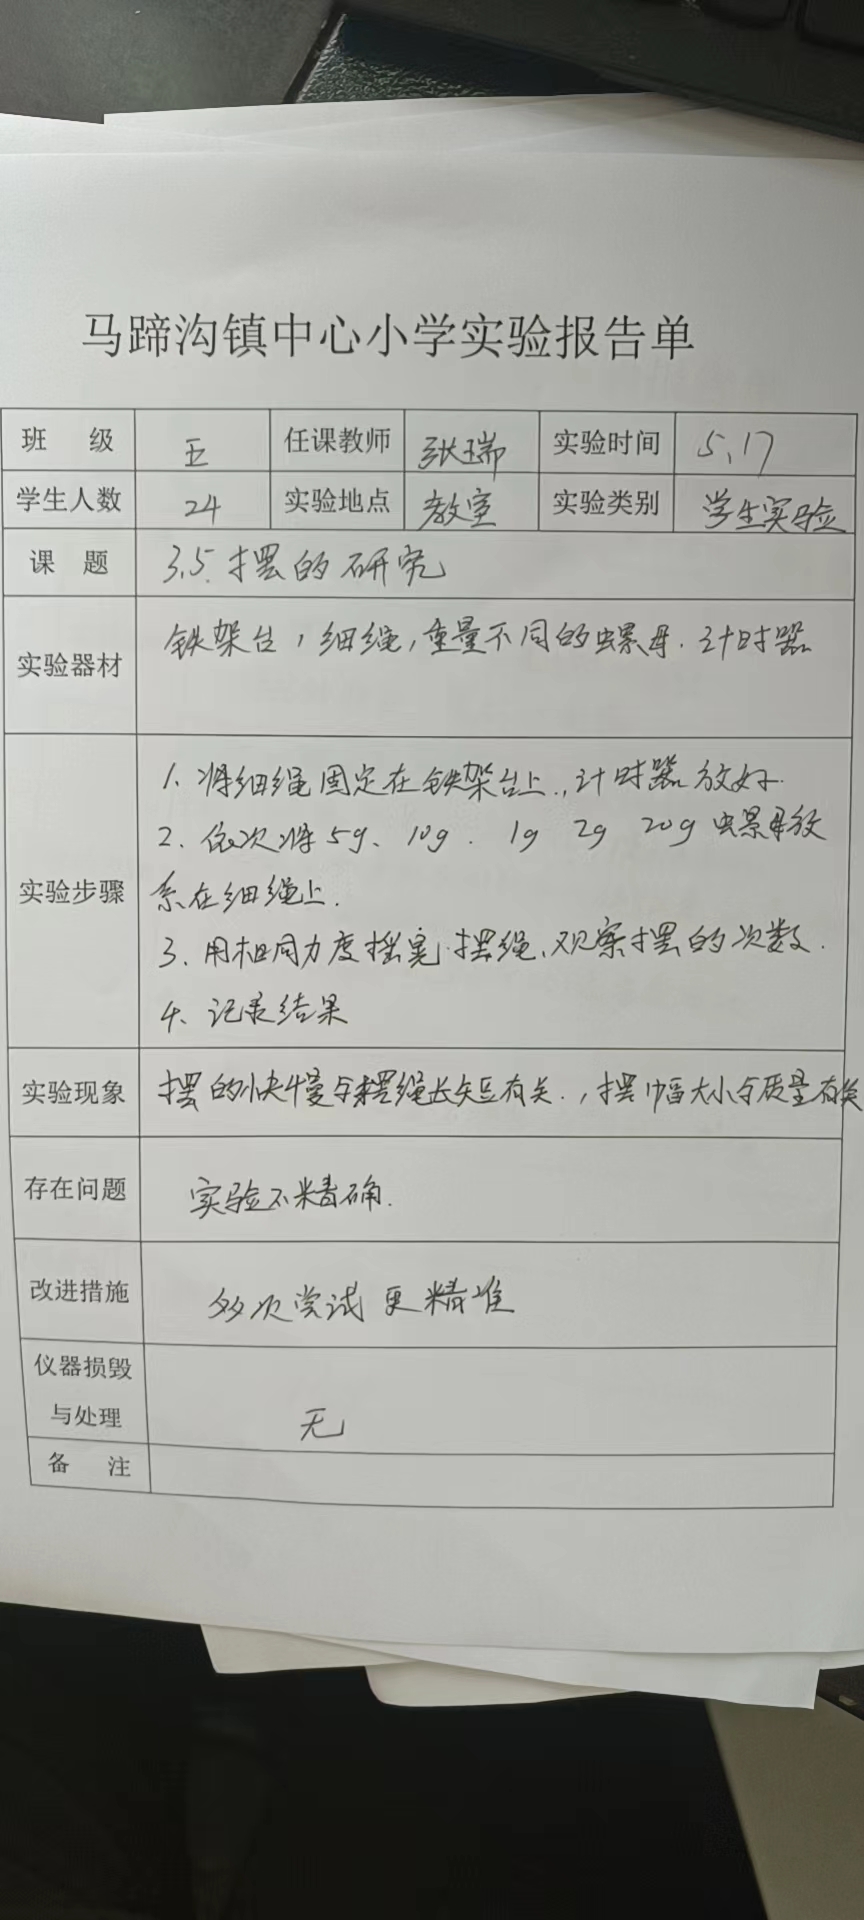 马蹄沟镇中心小学实验报告单
班 级 五 任课教师 张瑞 实验时间 5.17
学生人数 24 实验地点 教室 实验类别 学生实验
课 题 3.5 摆的研究
实验器材 铁架台，细绳，重量不同的螺母．计时器
实验步骤
1. 将细绳固定在铁架台上．，计时器放好．
2. 依次将5g、10g． 1g 2g 20g 螺母放
系在细绳上．
3. 用相同力度摇晃．摆绳、观察摆的次数．
4、记录结果
实验现象 摆的快慢与摆绳长短有关．，摆幅大小与质量有关
存在问题 实验不精确．
改进措施 多次尝试更精准
仪器损毁
与处理 无
备 注